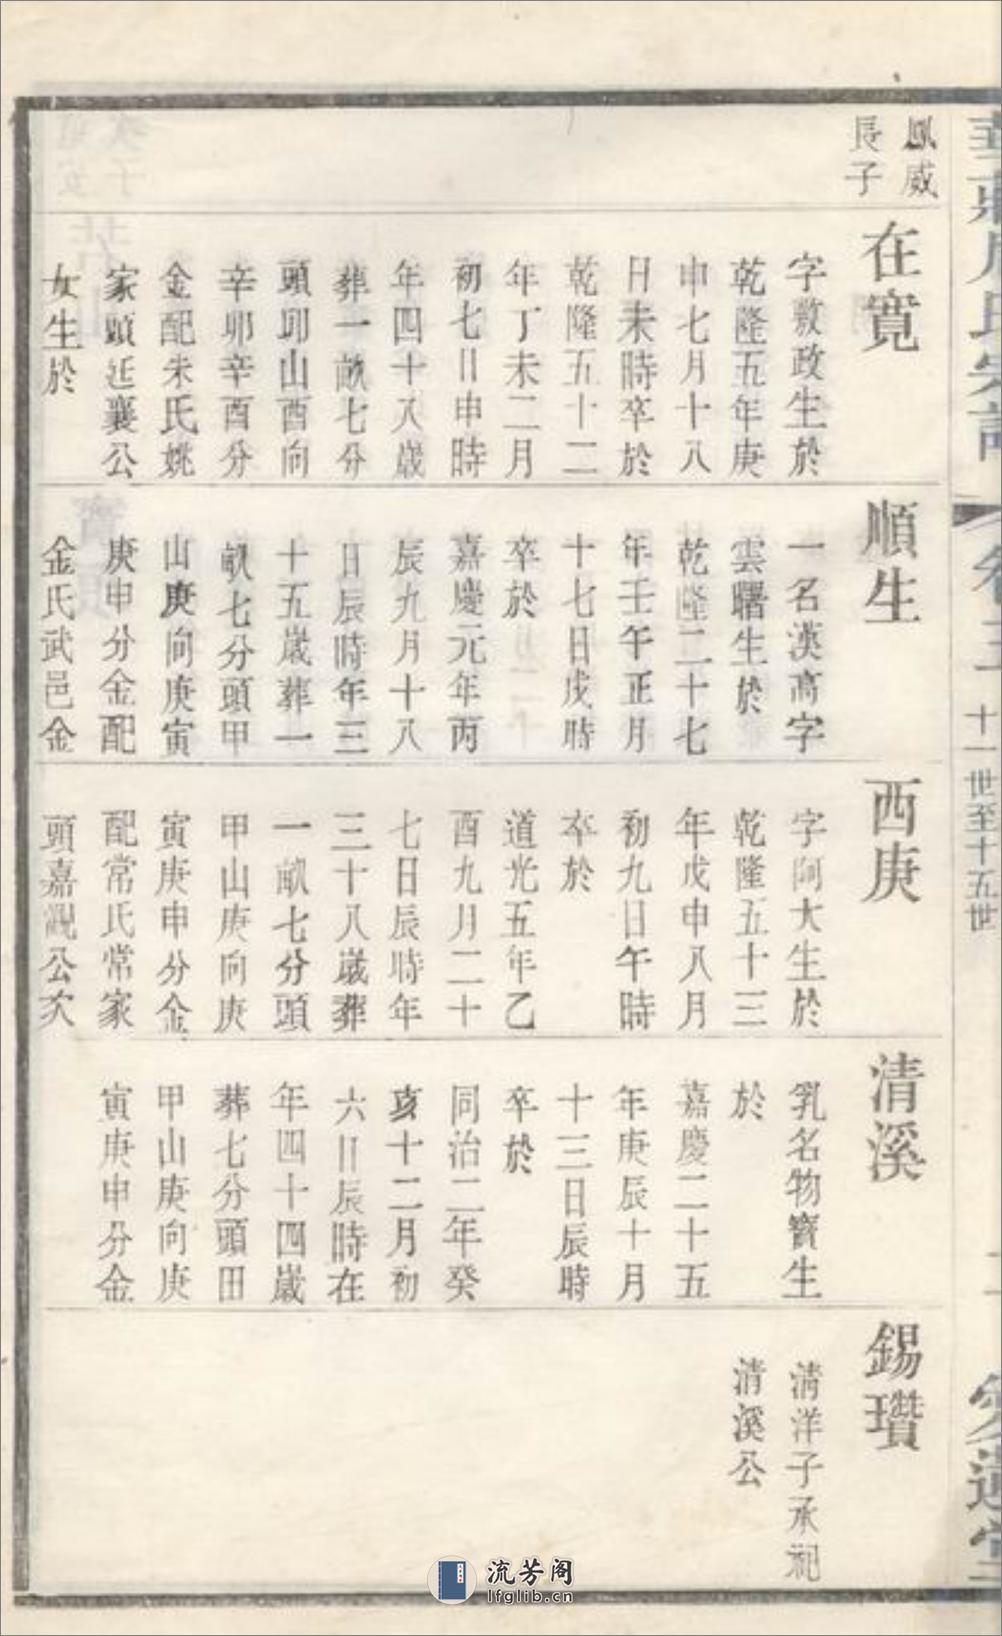 鳳威
長子
在寬
字敷政生於
乾隆五年庚
申七月十八
日未時卒於
乾隆五十二
年丁未二月
初七日申時
年四十八歲
葬一畝七分
頭卯山酉向
辛卯辛酉分
金配朱氏姚
家頭廷襄公
女生於
順生
一名漢高字
雲曙生於
乾隆二十七
年壬午正月
十七日戌時
卒於
嘉慶元年丙
辰九月十八
日辰時年三
十五歲葬一
畝七分頭甲
山庚向庚寅
庚申分金配
金氏武邑金
西庚
字阿大生於
乾隆五十三
年戊申八月
初九日午時
卒於
道光五年乙
酉九月二十
七日辰時年
三十八歲葬
一畝七分頭
甲山庚向庚
寅庚申分金
配常氏常家
頭嘉觀公次
清溪
乳名物寶生
於
嘉慶二十五
年庚辰十月
十三日辰時
卒於
同治二年癸
亥十二月初
六日辰時在
年四十四歲
葬七分頭田
甲山庚向庚
寅庚申分金
錫瓚
清洋子承祀
清溪公
卷三
十一世至十五世
流芳阁
lfglib.cn